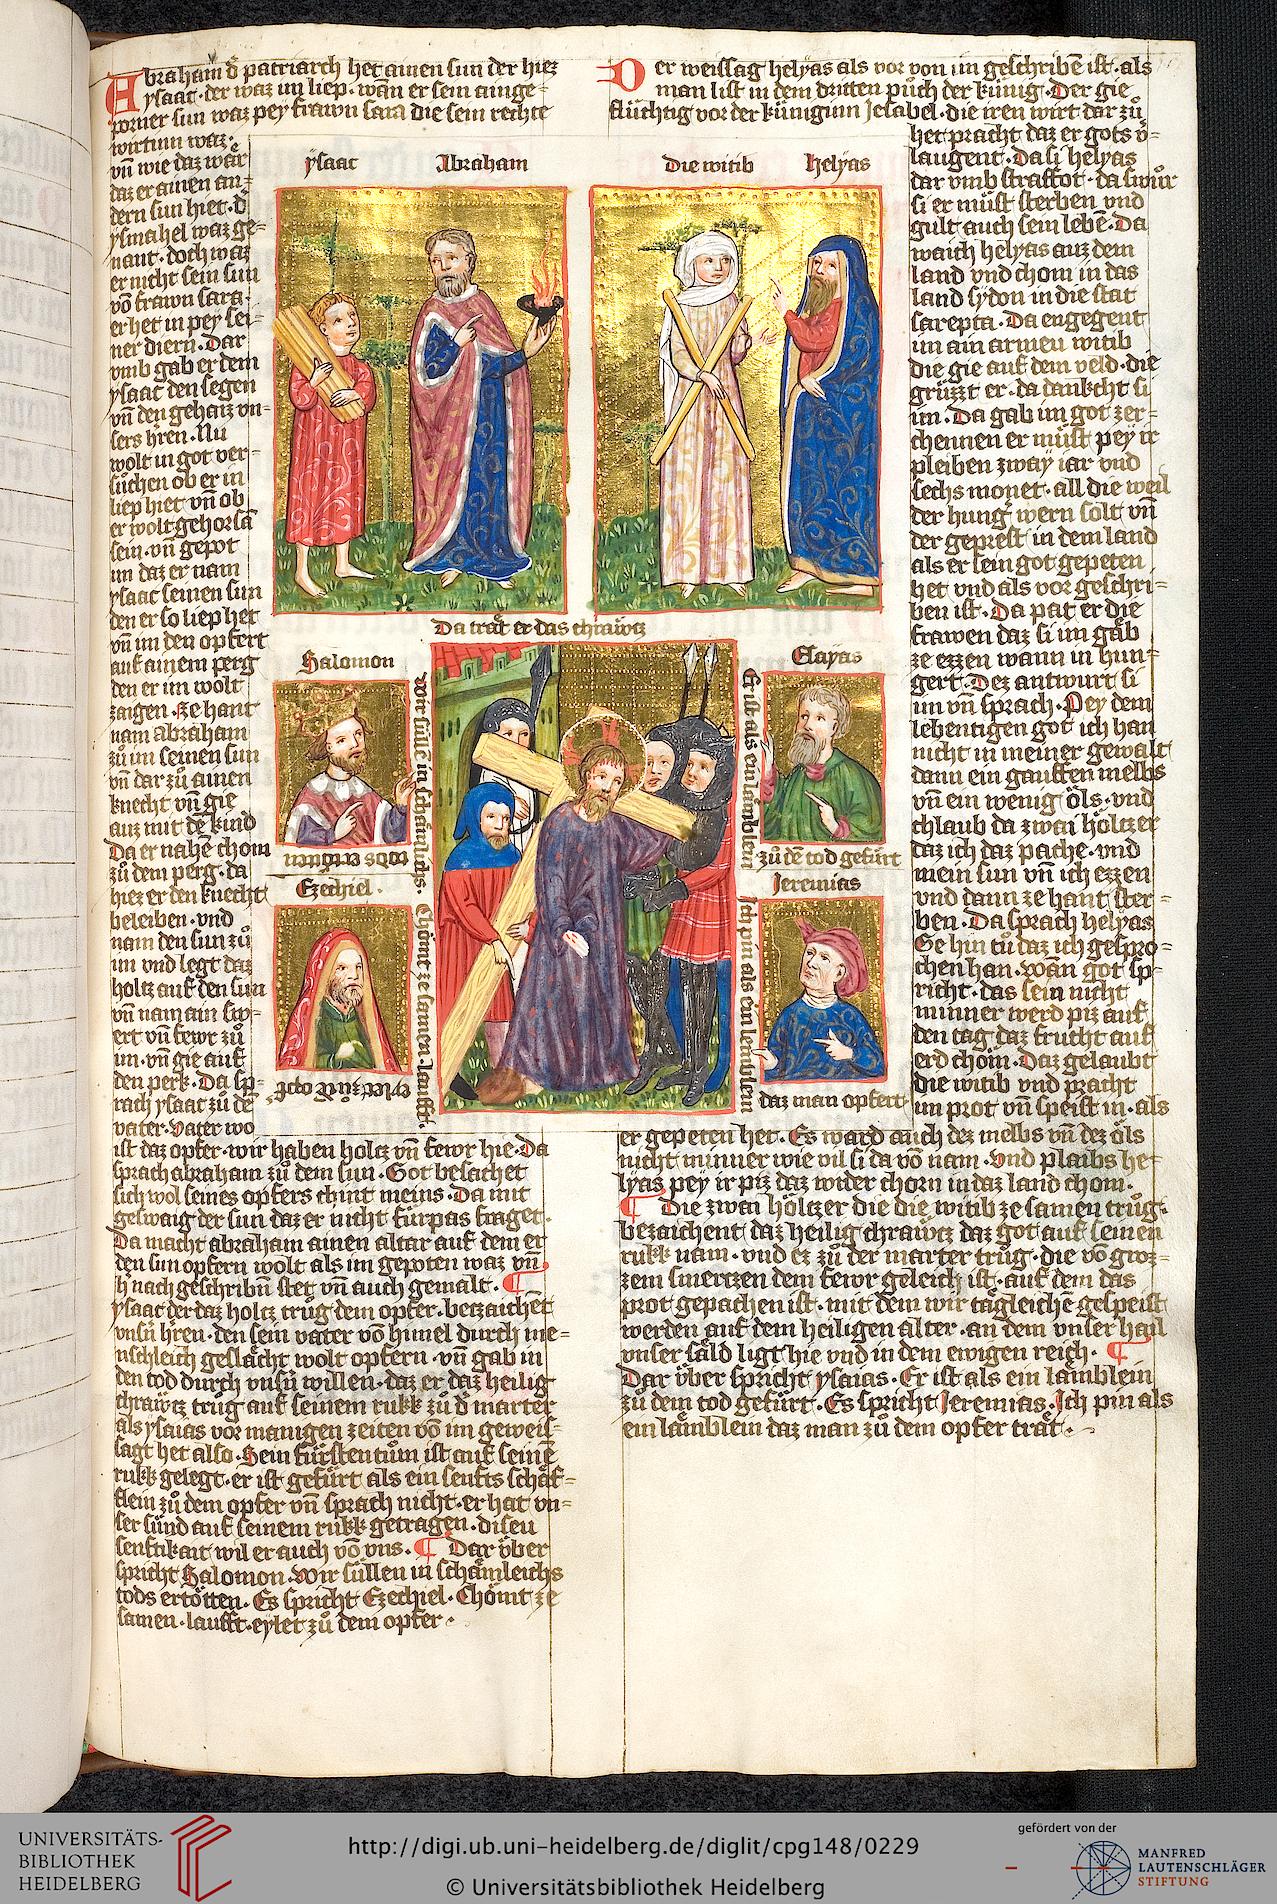 Abraham d͛ patriarch het ainen sun der hiez
ysaac · der waz im liep · wan er sein ainge⸗
porner sun waz pey frawn sara die sein rechte
wirtinn waz ·
vn̄ wie daz wår
daz er ainen an⸗
dern sun hiet · d͛
ysmahel waz ge⸗
nant · doch waz
er nicht sein sun
vō frawn sara ·
er het in pey sei⸗
ner diern · Dar
vmb gab er dem
ysaac den segen
vn̄ den gehaiz vn⸗
sers h͛ren · Nu
wolt in got ver⸗
sůchen ob er in
liep hiet vn̄ ob
er wolt gehorsā
sein · vn̄ gepot
im daz er nam
ysaac seinen sun
den er so liep het
vn̄ im den opfert
auf ainem perg
den er im wolt
zaigen · Ze hant
nam abraham
zů im seinen sun
vn̄ dar zů ainen
knecht vn̄ gie
auz mit dē kind
Da er nahē chom
zů dem perg · da
hiez er den knecht
beleiben · vnd
nam den sun zů
im vnd legt daz
holtz auf den sun
vn̄ nam ain sw⸗
ert vn̄ fewr zů
im · vn̄ gie auf
den perk · Da sp⸗
rach ysaac zů dē
vater · Vater wo
ist daz opfer · wir haben holtz vn̄ fewr hie · Da
sprach abraham zů dem sun · Got besachet
sich wol seines opfers chint meins · Da mit
geswaig der sun daz er nicht fürpas fraget ·
Da macht abraham ainen altar auf dem er
den sun opfern wolt als im gepoten waz vn̄
h͛ nach geschribn̄ stet vn̄ auch gemalt · ¶
ysaac der daz holtz trůg dem opfer · betzaichēt
vnsn̄ h͛ren · den sein vater vō himel durch me⸗
nschleich geslåcht wolt opfern · vn̄ gab in
den tod durch vnsn̄ willen · daz er daz heilig
chråwtz trůg auf seinem rukk zů d͛ marter
als ysaias vor manigen zeiten vō im geweis⸗
sagt het also · Sein fürstentům ist auf seinē
rukk gelegt · er ist gefürt als ein senfts schåf⸗
flein zů dem opfer vn̄ sprach nicht · er hat vn⸗
ser sünd auf seinem rukk getragen · disen
senftikait wil er auch vō vns · ¶ Dar über
spricht Salomon · Wir süllen in schåmleichs
tods ertötten · Es spricht Ezechiel · Chömt ze
samen · laufft · eylet zů dem opfer ·
ysaac Abraham
Die witib helyas
Da trat er das chrawtz
Salomon
Wir sülle in schamlichs
tods ertötten
Ezechiel ·
Chömt ze samen · laufft ·
eylet zů dē opfer
Esayas
Er ist als ein lamblein
zů dē tod gefürt
Jeremias
Ich pin als ein lemblein
daz man opfert
Der weissag helyas als vor von im geschribē ist · als
man list in dem dritten půch der künig · Der gie
flüchtig vor der küniginn Jesabel · die iren wirt dar zů
het pracht daz er gots v͛⸗
laugent · Da si helyas
dar vmb straffot · da swůr
si er můst sterben vnd
gült auch sein lebē · Da
waich helyas auz dem
land vnd chom in das
land sydon in die stat
sarepta · Da engegent
im ain armeu witib
die gie auf dem veld · die
grüzzt er · da dankcht si
im · Da gab im got zer⸗
chennen er müst pey ir
pleiben zway iar vnd
sechs monet · all die weil
der hung͛ wern solt vn̄
der geprest in dem land
als er sein got gepeten
het vnd als vor geschri⸗
ben ist · Da pat er die
frawen daz si im gåb
ze ezzen wann in hun⸗
gert · Dez antwurt si
im vn̄ sprach · Pey dem
lebentigen got ich han
nicht in meiner gewalt
dann ein gauffen melbs
vn̄ ein wenig öls · vnd
chlaub da zwai höltzer
daz ich daz pache · vnd
mein sun vn̄ ich ezzen
vnd dann ze hant ster⸗
ben · Da sprach helyas
Ge hin tů daz ich gespro⸗
chen han · wān got sp⸗
richt · das sein nicht
minner werd piz auf
den tag daz frucht auf
erd chöm · Daz gelaubt
die witib vnd pracht
im prot vn̄ speist in · als
er gepeten het · Es ward auch dez melbs vn̄ dez öls
nicht minner wie vil si da vō nam · Vnd plaibs he⸗
lyas pey ir piz daz wider chorn in daz land chom ·
¶ Die zwai höltzer die die witib ze samen trůg ·
bezaichent daz heilig chråwtz daz got auf seinen
rukk nam · vnd ez zů der marter trůg · die vō groz⸗
zem smertzen dem fewr geleich ist · auf dem das
prot gepachen ist · mit dem wir tågleichē gespeist
werden auf dem heiligen alter · an dem vnser hail
vnser såld ligt hie vnd in dem ewigen reich · ¶
Dar über spricht ysaias · Er ist als ein låmblein
zů dem tod gefürt · Es spricht Jeremias · Ich pin als
ein låmblein daz man zů dem opfer trat ·
UNIVERSITÄTS-
BIBLIOTHEK
HEIDELBERG
http://digi.ub.uni-heidelberg.de/diglit/cpg148/0229
© Universitätsbibliothek Heidelberg
gefördert von der
MANFRED
LAUTENSCHLÄGER
STIFTUNG